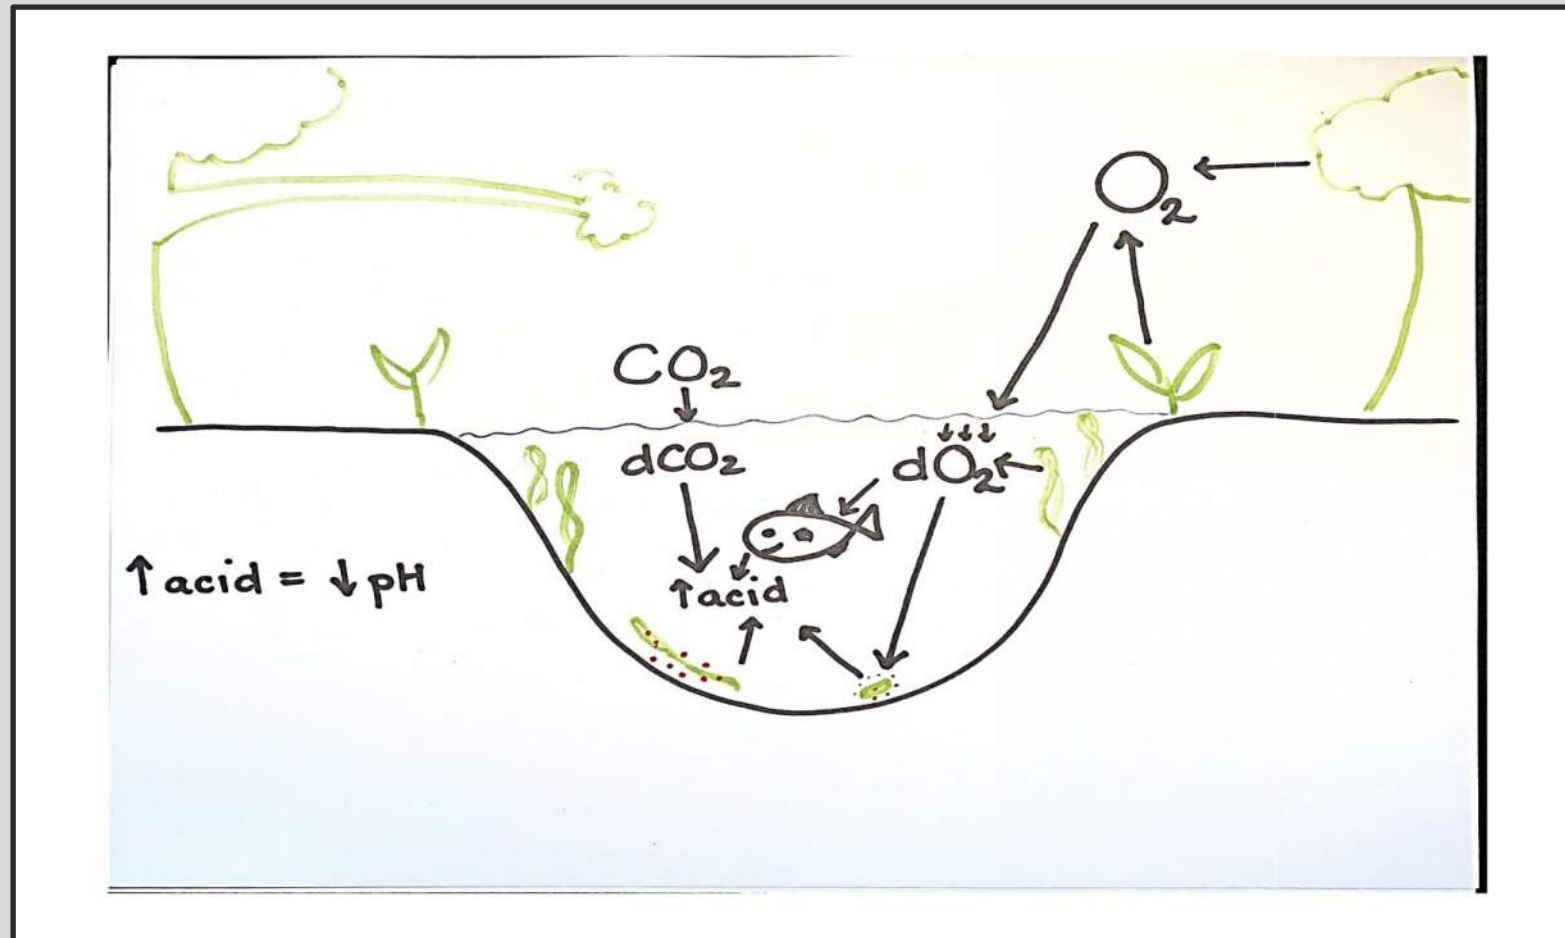 O₂
CO₂
dCO₂
dO₂
↑acid = ↓pH
↑acid